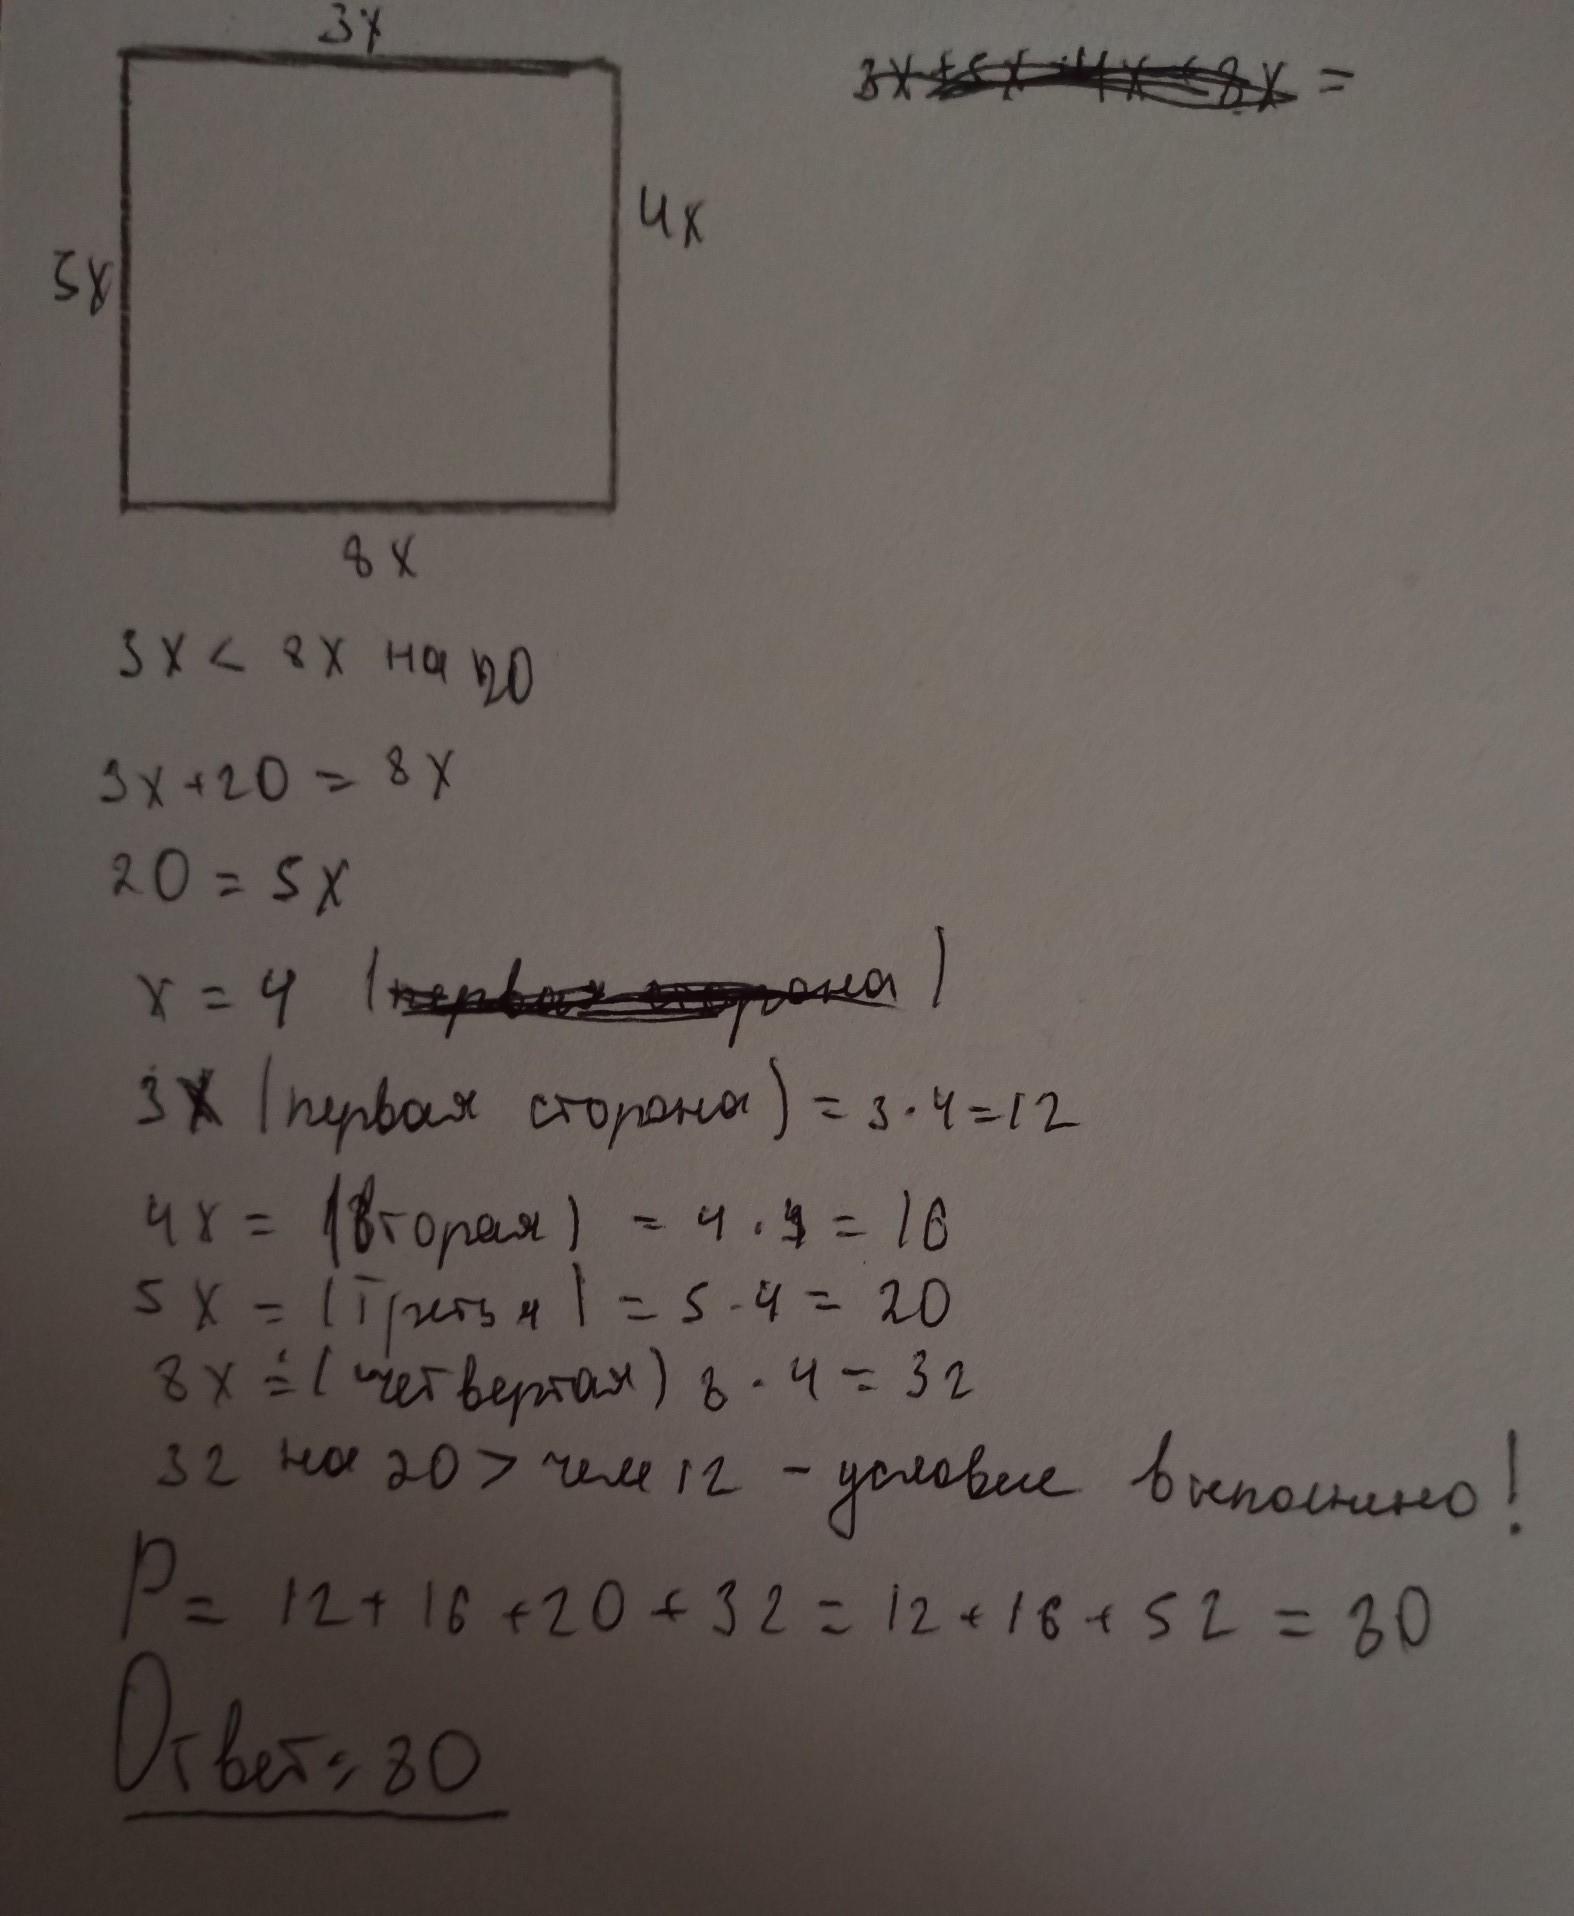 3x
3x+5x+4x+8x =
4x
5x
8x
3x < 8x на 20
3x+20 = 8x
20 = 5x
x = 4 (первая сторона)
3x (первая сторона) = 3·4=12
4x = (вторая) = 4·4 = 16
5x = (Третья) = 5·4 = 20
8x = (четвертая) 8·4 = 32
32 на 20 > чем 12 - условие выполнено!
P = 12+16+20+32 = 12+16+52 = 80
Ответ = 80